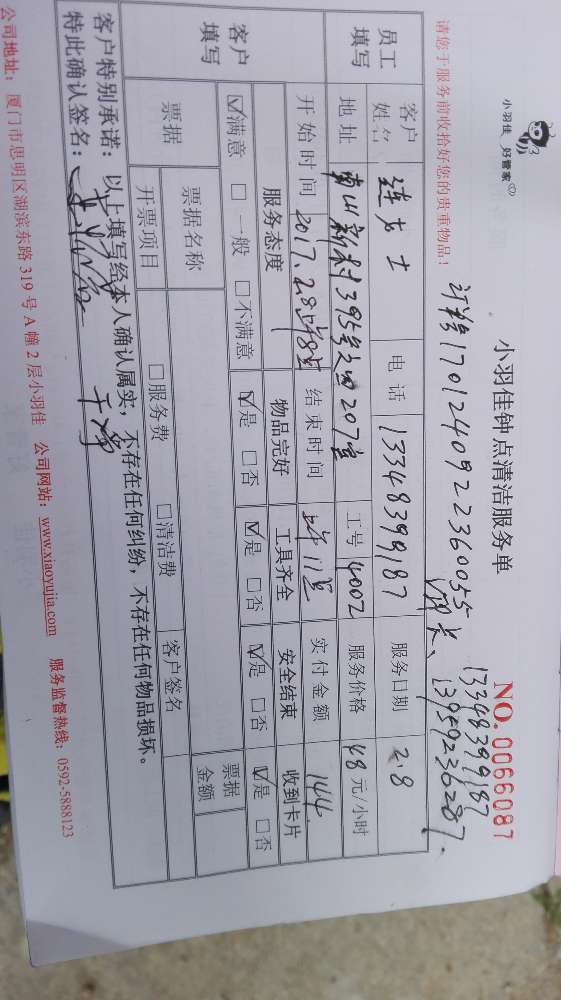 小羽佳 好管家
小羽佳钟点清洁服务单
NO.0066087
请您于服务前收拾好您的贵重物品！
1701240922360055
13348399187
13959236287.
员工填写
客户姓名
连女士
电话
13348399187
服务日期
2.8
地址
南山新村395号之四207室
工号
4002
服务价格
48元/小时
开始时间
2017.2.8
结束时间
实付金额
144
客户填写
服务态度
物品完好
工具齐全
安全结束
收到卡片
☑满意 □一般 □不满意
☑是 □否
☑是 □否
☑是 □否
☑是 □否
票据
票据名称
票据金额
开票项目
□服务费 □清洁费
客户签名
客户特别承诺：以上填写经本人确认属实，不存在任何纠纷，不存在任何物品损坏。
特此确认签名：
干净
公司地址：厦门市思明区湖滨东路319号A幢2层小羽佳 公司网站：www.xiaoyujia.com 服务监督热线：0592-5888123